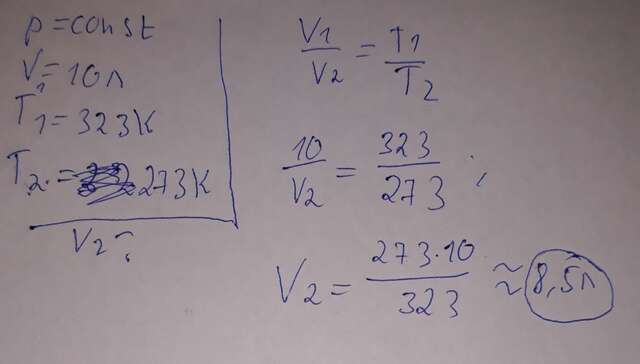 p=const
V₁=10л
T₁=323K
T₂.= 273K
V₂?
V₁/V₂ = T₁/T₂
10/V₂ = 323/273 ;
V₂ = 273·10/323 ≈ 8,5л